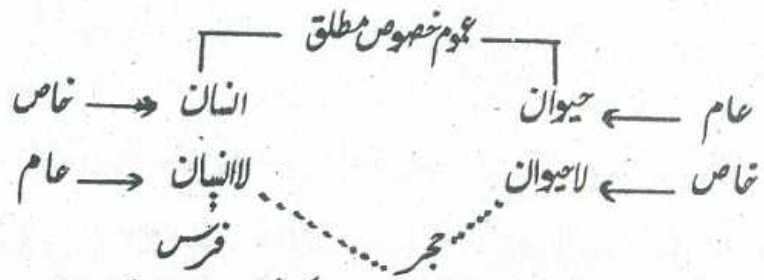 عموم خصوص مطلق
عام حیوان انسان خاص
خاص لاحیوان لاانسان عام
حجر فرس